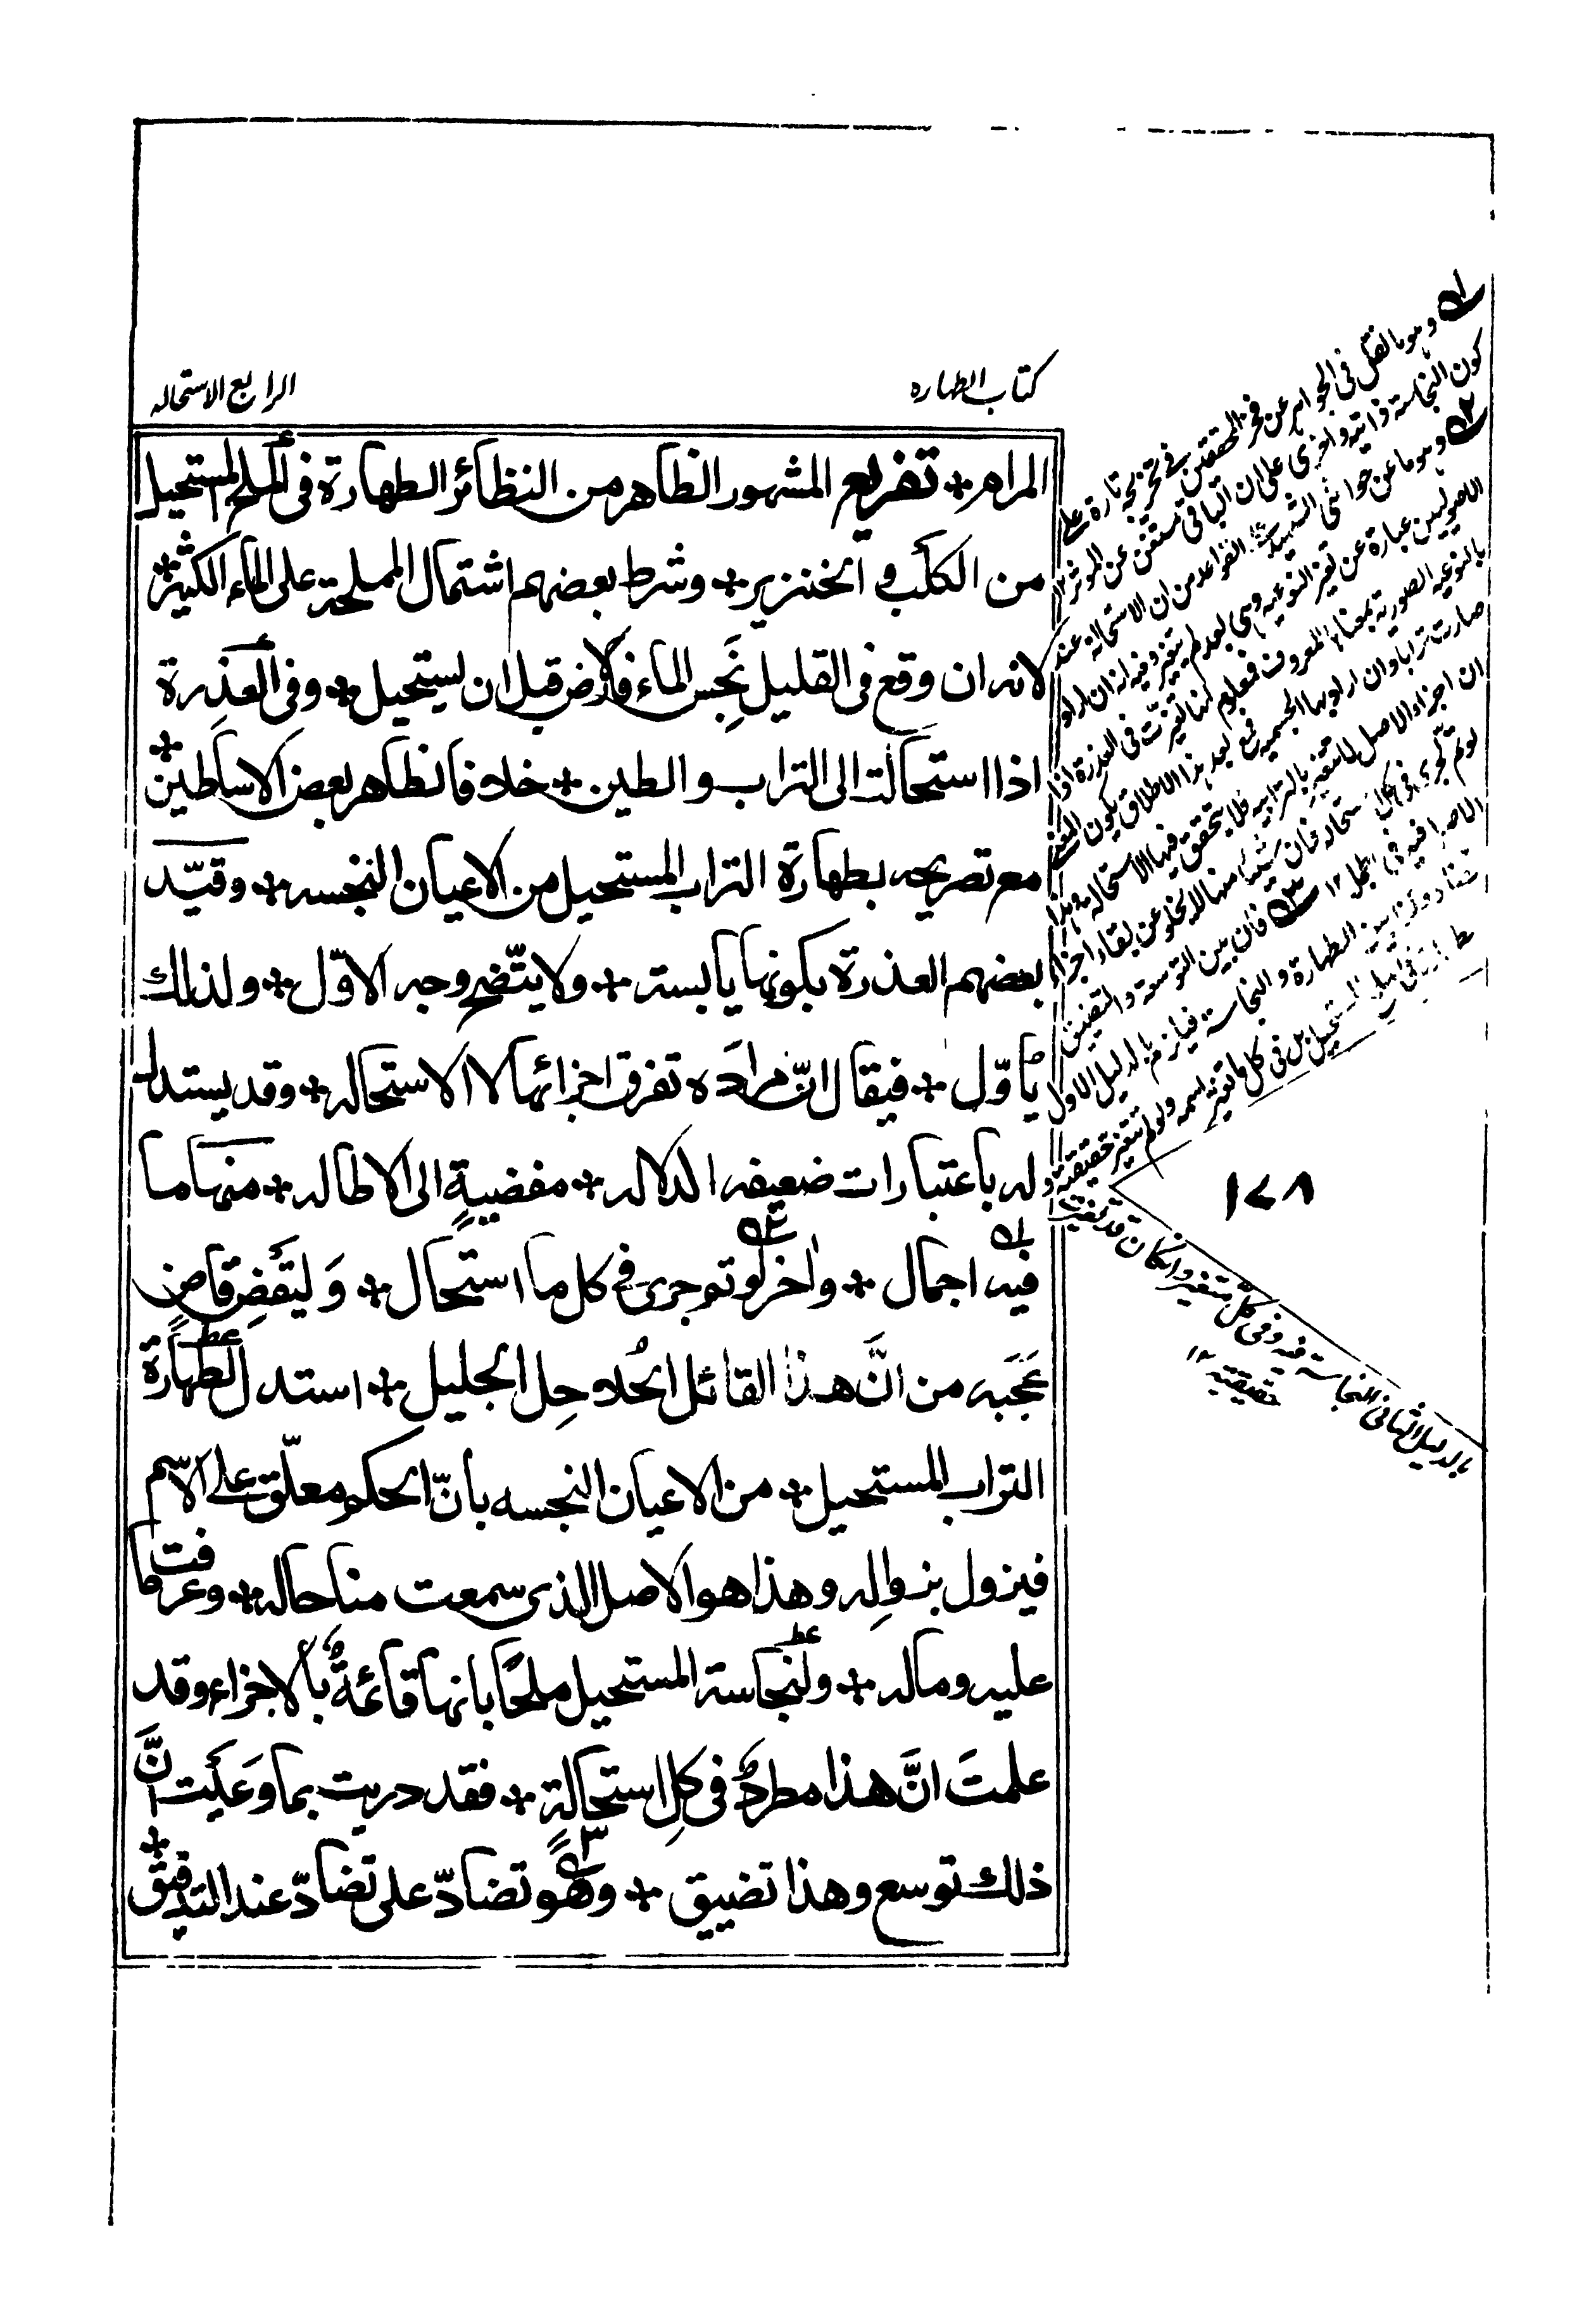 كتاب الطهاره
الرابع الاستحاله
المرام * تفريع المشهور الظاهر من النظائر الطهارة فى الملح المستحيل
من الكلب و الخنزير * وشرط بعضهم اشتمال المملحة على الماء الكثير *
لانه ان وقع فى القليل نَجِس الماء فالارض قبل ان يستحيل * وفى العذِرة
اذا استحالت الى التراب و الطين * خلاف فالظاهر بعض الاساطين *
مع تصريحه بطهارة التراب المستحيل من الاعيان النجسه * وقيّد
بعضهم العذرة بكونها يابسة * ولا يتّضح وجه الاوّل * ولذلك
يأوّل * فيقال انّ مرادَه تفرق اجزائها لا الاستحاله * وقد يستدل
له باعتبارات ضعيفه الدلاله * مفضيةٍ الى الاطاله * منها ما
فيه اجمال * واخر لو تم جرى فى كل ما استحال * وَليَقضِ قاضٍ
عَجَبَه من انَّ هذا القائل الحُلاحِل الجليل * استدل لطهارة
التراب المستحيل * من الاعيان النجسه بأنّ الحكم معلّق على الاسم
فيزول بزوالِه وهذا هو الاصل الذى سمعت منا حاله * وعرفت ما
عليه وماله * ولنجاسة المستحيل ملحًا بانها قائمةٌ بالاجزاء وقد
علمتَ انَّ هذا مطردٌ فى كلِ استحالةٍ * فقد دريت بما وَعَيت انَّ
ذلك توسع وهذا تضييق * وهو تضادّ على تضادّ عند التدقيق *
١ وهو ما نقل فى الجواهر عن فخر المحققين فى تخريجه تارة على
كون النجاسة ذاتيه واخرى على ان الباقى مستغن عن المؤثر ١٢
٢ وهو ما عن حواشى الشهيد القواعد من ان الاستحالة عند
الاصوليين عبارة عن تغير النوعيه وهى بعد لم يتغير وفيه انه ان اراد
بالنوعيه الصورية بمعناه المعروف فمعلوم انها تغيرت فى العذرة اذا
صارت ترابا وان اراد بها الجسميه فمع بعد هذا الاطلاق يكون المعنى
ان اجزاء الاصل للمتغير بالترابيه فلا يتحقق فيها الاستحاله وهذا
لو تم لجرى فى كل استحاله فان شيئا منها لا يخلو عن بقاء اجزاء
الاصل فيه فى الجمله ١٢ ٣ فان بين التوسعة والتضييق
الطهارة و النجاسة فيلزم بالدليل الاول
بل فى كل ما تغير اسمه ولو لم يتغير حقيقته و
بالدليل الثانى النجاسة فيه وفى كل متغير وان كان قد تغيرت
حقيقته ١٢
١٢٨